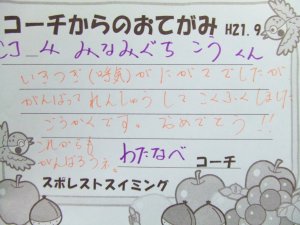 コーチからのおてがみ H21.9
み みなみぐち こう くん
いきつぎ(呼気)が にがてでしたが
がんばって れんしゅう して こくふくしました
ごうかくです。おめでとう!!
これからも
がんばろうネ。
わたなべ コーチ
スポレストスイミング